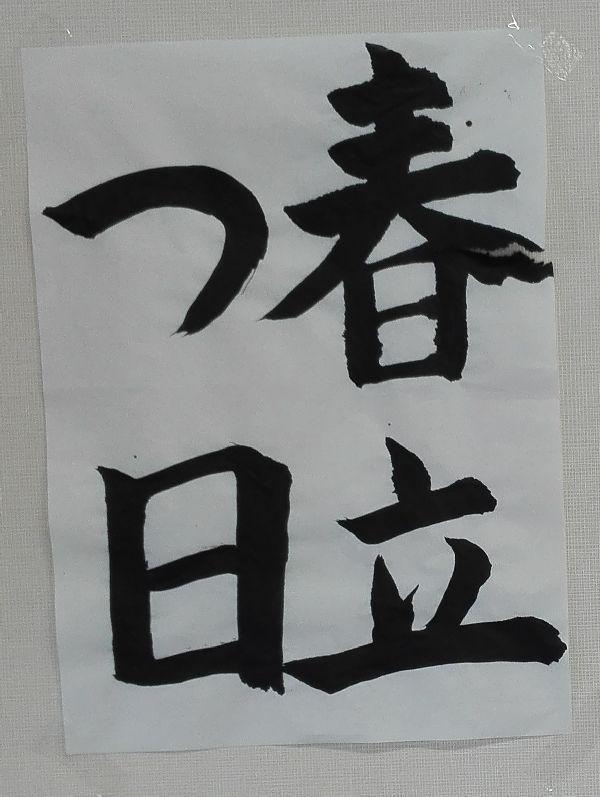 春立
つ日